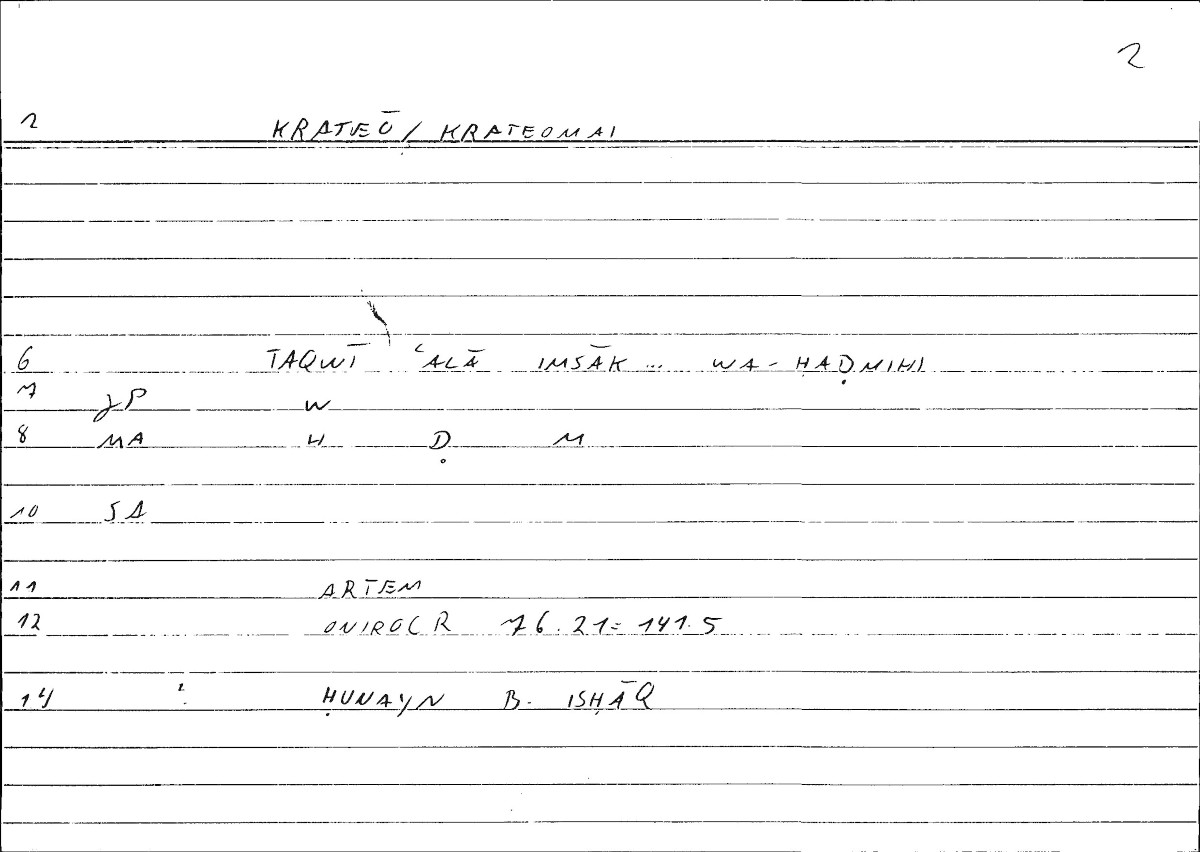 2
2 KRATEŌ / KRATEOMAI
6 TAQWĪ ʿALĀ IMSĀK ... WA-HAḌMIHI
7 JP W
8 MA H Ḍ M
10 SA
11 ARTEM
12 ONIROCR 76.21=141.5
14 ḤUNAYN B. ISḤĀQ